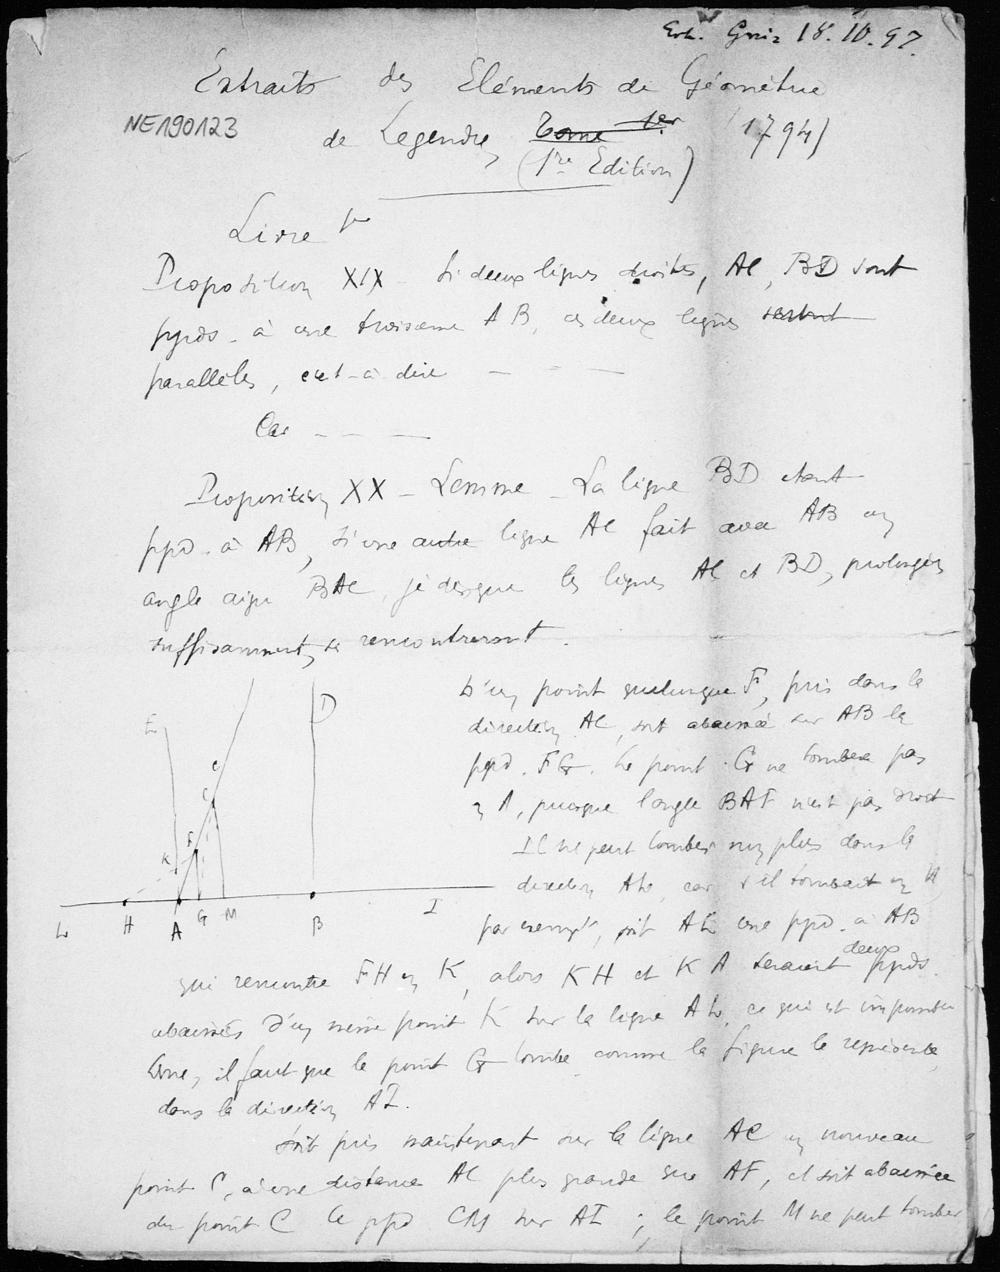 18.10.97.
Extraits des Eléments de Géométrie
NE190123
de Legendre, Tome 1er (1794)
(1re Edition)
Livre 1er
Proposition XIX - Si deux lignes droites, AC, BD sont
ppds. à une troisième AB, ces deux lignes seront
parallèles, c'est-à-dire - - -
Car - - -
Proposition XX - Lemme - La ligne BD étant
ppd. à AB, si une autre ligne AC fait avec AB un
angle aigu BAC, je dis que les lignes AC et BD, prolongées
suffisamment, se rencontreront.
D'un point quelconque F, pris dans la
direction AC, soit abaissée sur AB la
ppd. FG. Le point G ne tombera pas
en A, puisque l'angle BAF n'est pas droit
Il ne peut tomber non plus dans la
direction AL, car s'il tombait en H,
par exemple, soit AE une ppd. à AB
qui rencontre FH en K, alors KH et KA seraient deux ppds.
abaissées d'un même point K sur la ligne AL, ce qui est impossible
Donc, il faut que le point G tombe, comme la figure le représente,
dans la direction AI.
Soit pris maintenant sur la ligne AC un nouveau
point C, à une distance AC plus grande que AF, et soit abaissée
du point C la ppd CM sur AI ; le point M ne peut tomber
E
D
C
C
F
K
L
H
A
G
M
B
I